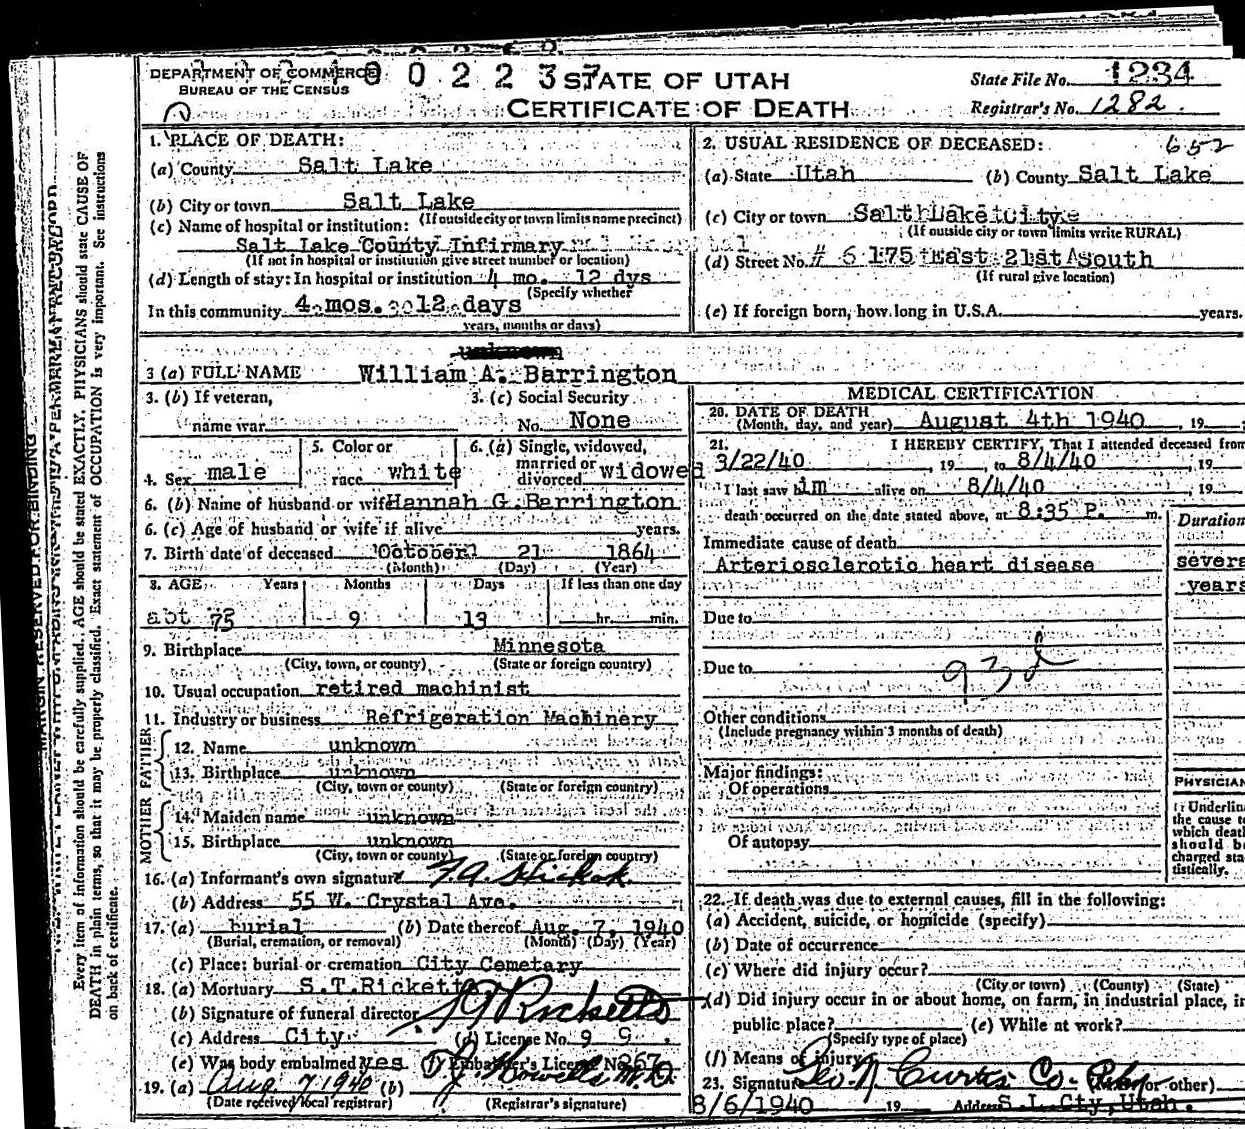 DEPARTMENT OF COMMERCE
BUREAU OF THE CENSUS
STATE OF UTAH
CERTIFICATE OF DEATH
State File No. 1234
Registrar's No. 1282.
1. PLACE OF DEATH:
(a) County Salt Lake
(b) City or town Salt Lake
(If outside city or town limits name precinct)
(c) Name of hospital or institution:
Salt Lake County Infirmary
(If not in hospital or institution give street number or location)
(d) Length of stay: In hospital or institution 4 mo. 12 dys
(Specify whether
In this community 4 mos. 12 days
years, months or days)
2. USUAL RESIDENCE OF DECEASED: 652
(a) State Utah (b) County Salt Lake
(c) City or town Salt Lake City
(If outside city or town limits write RURAL)
(d) Street No. # 6 175 East 21st South
(If rural give location)
(e) If foreign born, how long in U.S.A. years.
unknown
3 (a) FULL NAME William A. Barrington
3. (b) If veteran,
name war
3. (c) Social Security
No. None
4. Sex male
5. Color or
race white
6. (a) Single, widowed,
married or
divorced widowed
6. (b) Name of husband or wife Hannah G. Barrington
6. (c) Age of husband or wife if alive years.
7. Birth date of deceased October 21 1864
(Month) (Day) (Year)
8. AGE Years Months Days If less than one day
abt 75 9 13 hr. min.
9. Birthplace Minnesota
(City, town, or county) (State or foreign country)
10. Usual occupation retired machinist
11. Industry or business Refrigeration Machinery
FATHER
12. Name unknown
13. Birthplace unknown
(City, town or county) (State or foreign country)
MOTHER
14. Maiden name unknown
15. Birthplace unknown
(City, town or county) (State or foreign country)
16. (a) Informant's own signature
(b) Address 55 W. Crystal Ave.
17. (a) burial (b) Date thereof Aug. 7, 1940
(Burial, cremation, or removal) (Month) (Day) (Year)
(c) Place: burial or cremation City Cemetary
18. (a) Mortuary S.T.Ricketts
(b) Signature of funeral director S T Ricketts
(c) Address City (d) License No. 9 9
(e) Was body embalmed yes (f) Embalmer's License No. 267
19. (a) Aug 7 1940 (b)
(Date received local registrar) (Registrar's signature)
MEDICAL CERTIFICATION
20. DATE OF DEATH
(Month, day, and year) August 4th 1940, 19
21. I HEREBY CERTIFY, That I attended deceased from
3/22/40, 19, to 8/4/40, 19
I last saw him alive on 8/4/40, 19
death occurred on the date stated above, at 8:35 P. m.
Duration
Immediate cause of death
Arteriosclerotic heart disease
several
years
Due to
Due to
93d
Other conditions
(Include pregnancy within 3 months of death)
Major findings:
Of operations
Of autopsy
PHYSICIAN
Underline
the cause to
which death
should be
charged sta-
tistically.
22. If death was due to external causes, fill in the following:
(a) Accident, suicide, or homicide (specify)
(b) Date of occurrence
(c) Where did injury occur?
(City or town) (County) (State)
(d) Did injury occur in or about home, on farm, in industrial place, in
public place? (e) While at work?
(Specify type of place)
(f) Means of injury
23. Signature Geo. N Curtis Co. Phy (or other)
8/6/1940 19 Address S. L. Cty, Utah.
MARGIN RESERVED FOR BINDING
Every item of information should be carefully supplied. AGE should be stated EXACTLY. PHYSICIANS should state CAUSE OF
DEATH in plain terms, so that it may be properly classified. Exact statement of OCCUPATION is very important. See instructions
on back of certificate.